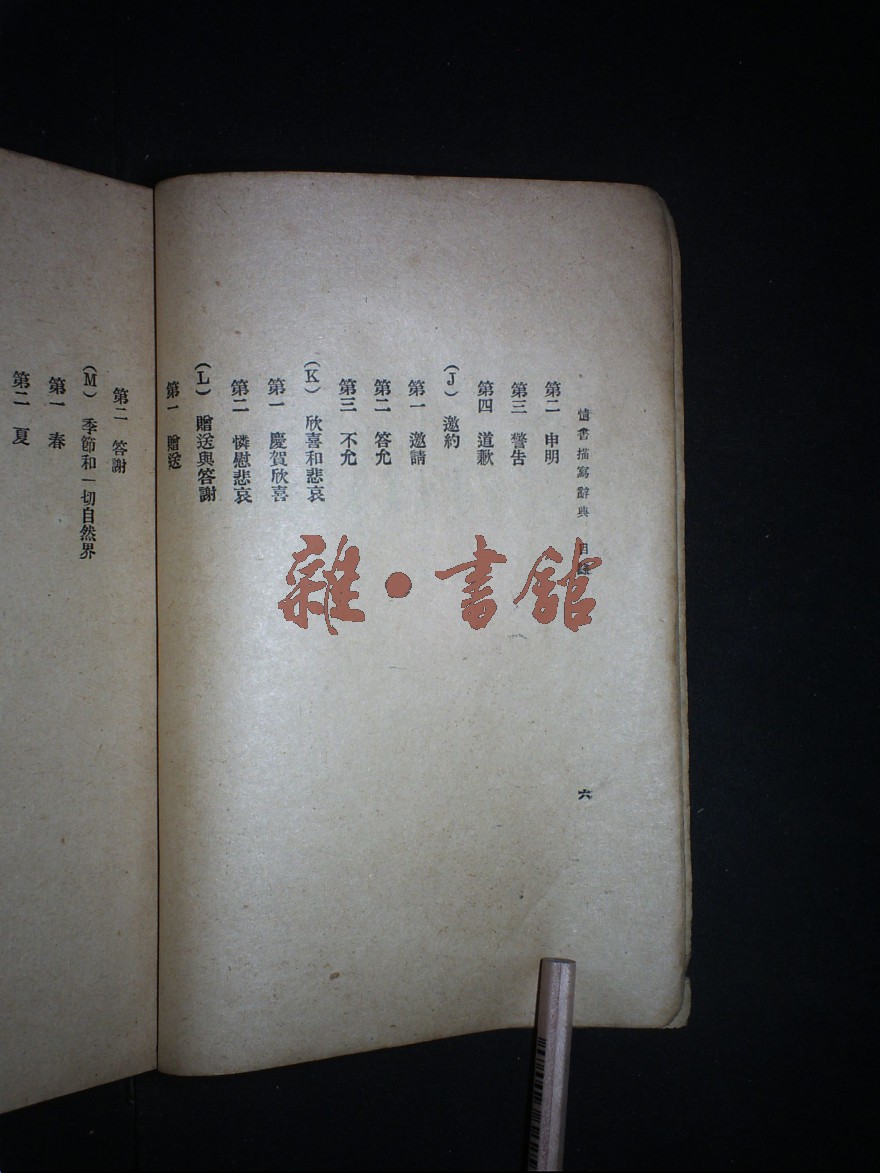 情書描寫辭典 目錄
六
第二 申明
第三 警告
第四 道歉
(J) 邀約
第一 邀請
第二 答允
第三 不允
(K) 欣喜和悲哀
第一 慶賀欣喜
第二 憐慰悲哀
(L) 贈送與答謝
第一 贈送
第二 答謝
(M) 季節和一切自然界
第一 春
第二 夏
雜·書館